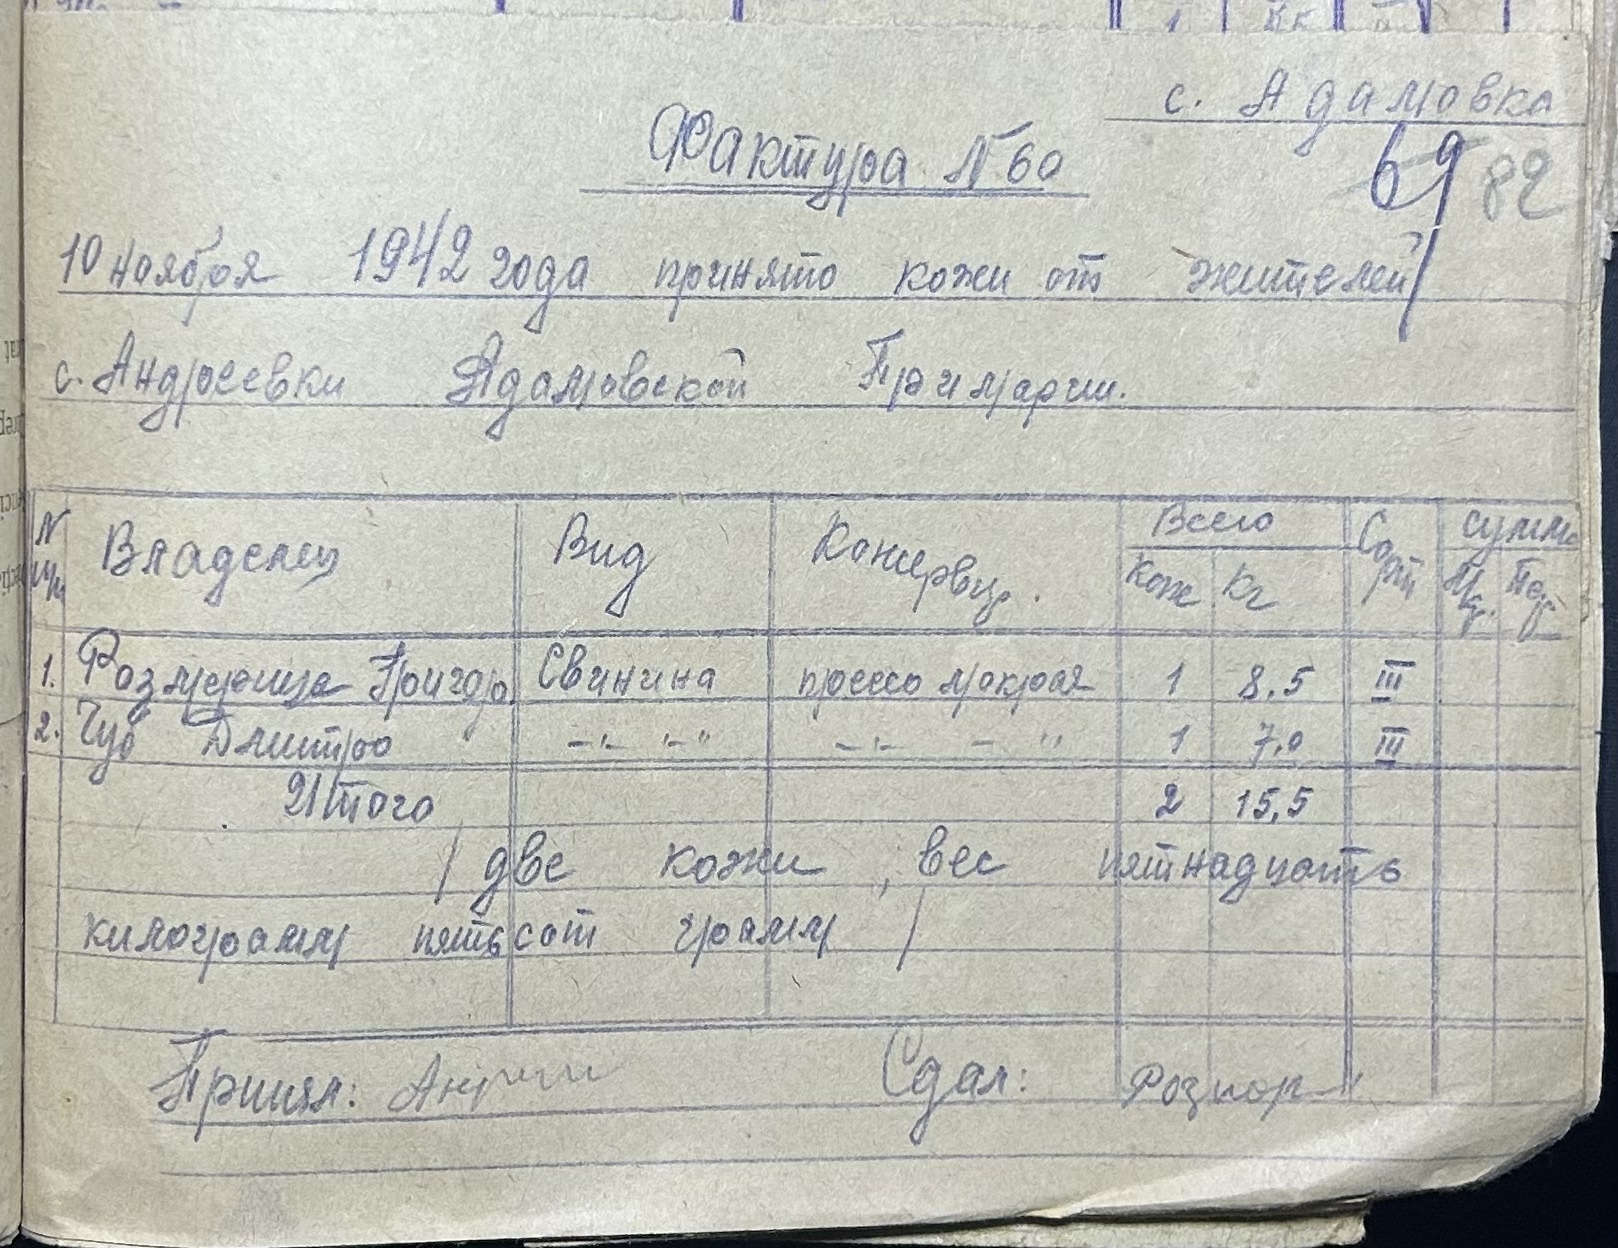 с. Адамовка
Фактура N 60
69 82
10 ноября 1942 года принято кожи от жителей
с. Андреевки Адамовской Примарии.
N п/п Владелец Вид Консервир. Всего Сорт сумма
кож кг Пф.
1. Григор. Свинина пресно мокрая 1 8.5 III
2. Чуб Дмитро -"- -"- -"- - " 1 7,0 III
Итого 2 15,5
/ две кожи, вес пятнадцать
килограмм пятьсот грамм /
Принял: Сдал: